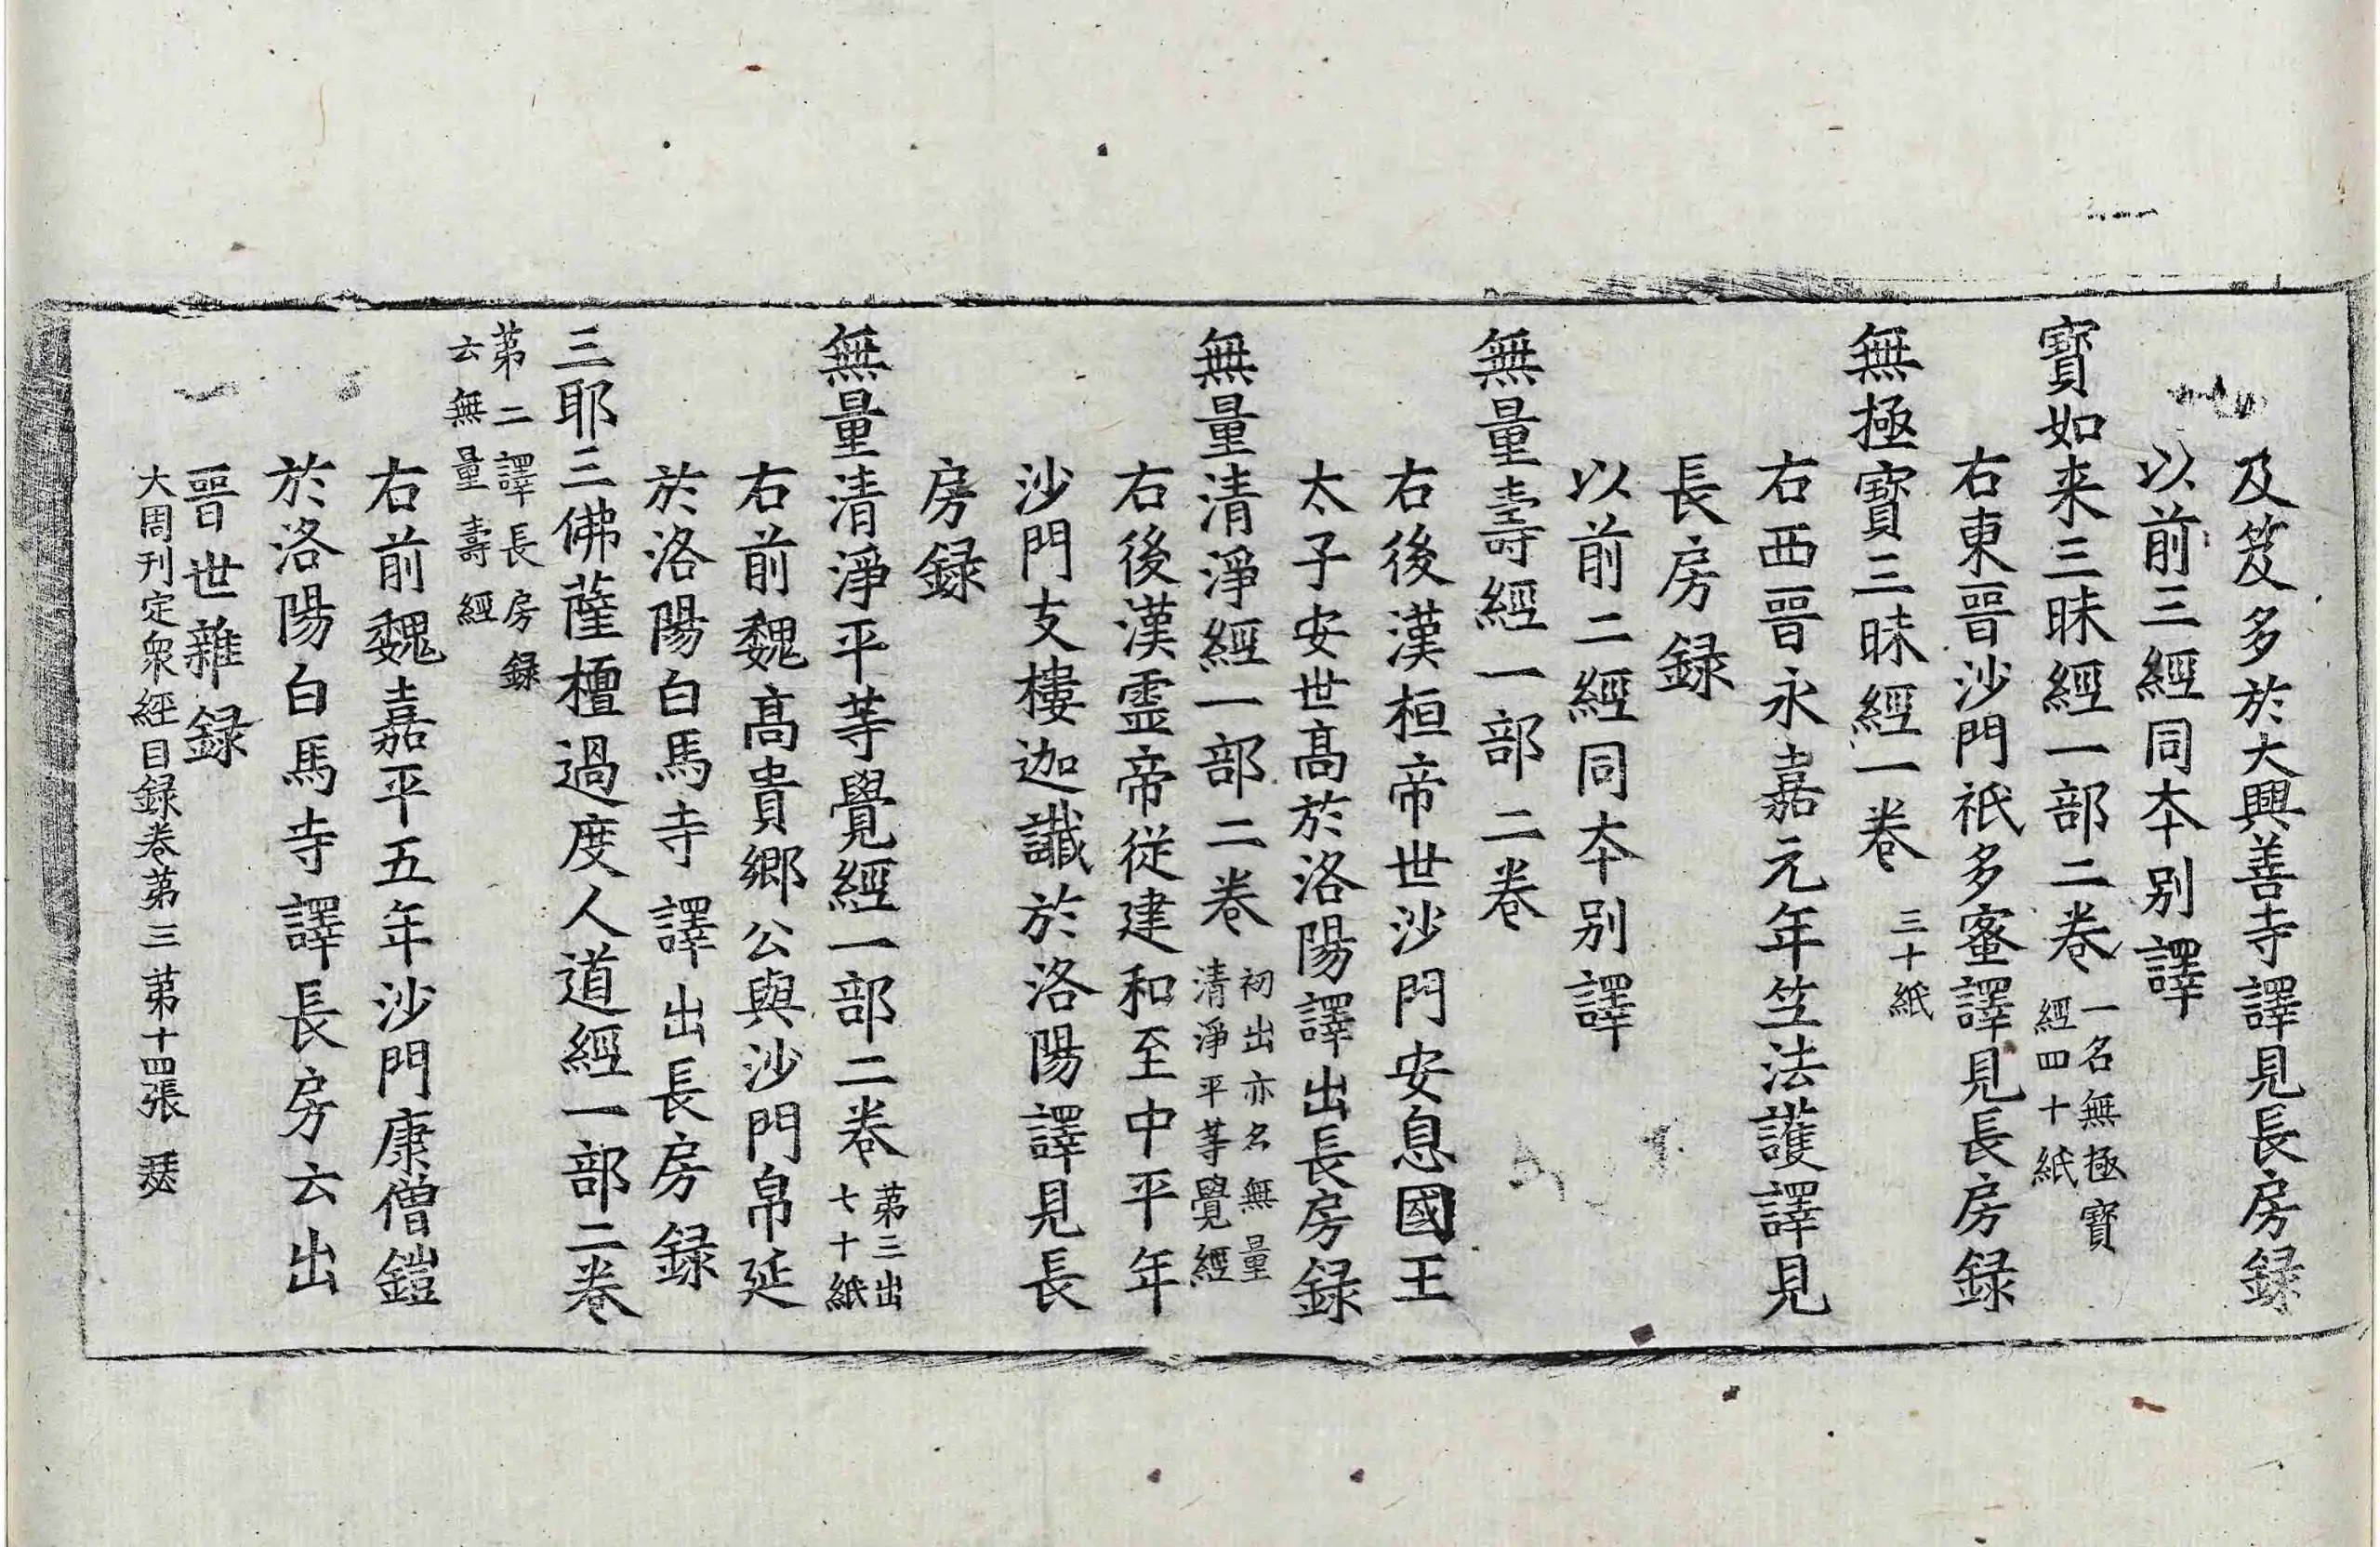 及笈多於大興善寺譯見長房録
以前三經同夲别譯
寳如来三昧經一部二卷 一名無極寳
經四十紙
右東晉沙門祇多蜜譯見長房録
無極寳三昧經一卷 三十紙
右西晉永嘉元年竺法護譯見
長房録
以前二經同夲别譯
無量壽經一部二卷
右後漢桓帝世沙門安息國王
太子安世髙於洛陽譯出長房録
無量清淨經一部二卷 初出亦名無量
清淨平䓁覺經
右後漢靈帝從建和至中平年
沙門支樓迦讖於洛陽譯見長
房録
無量清淨平䓁覺經一部二卷 苐三出
七十紙
右前魏髙貴郷公與沙門帛延
於洛陽白馬寺譯出長房録
三耶三佛薩檀過度人道經一部二卷
苐二譯長房録
云無量壽經
右前魏嘉平五年沙門康僧鎧
於洛陽白馬寺譯長房云出
晉世雜録
大周刊定衆經目録卷苐三 苐十四張 瑟